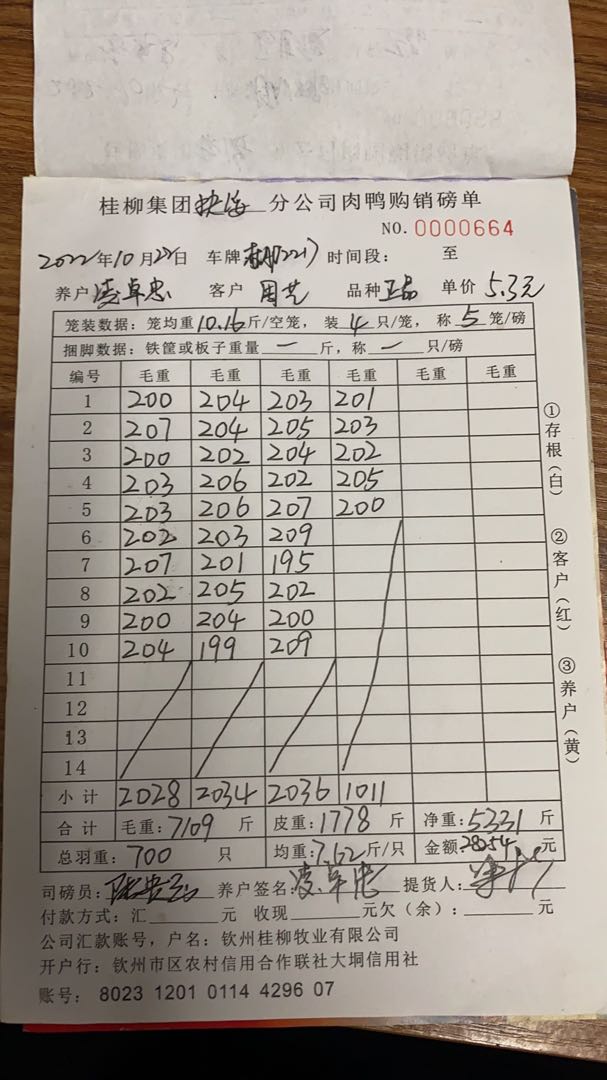 桂柳集团 分公司肉鸭购销磅单
NO. 0000664
2022年10月22日 车牌 时间段： 至
养户 凌卓忠 客户 周艺 品种 正品 单价 5.3元
笼装数据：笼均重10.16斤/空笼，装4只/笼，称5笼/磅
捆脚数据：铁筐或板子重量一斤，称一只/磅
编号 毛重 毛重 毛重 毛重 毛重 毛重
1 200 204 203 201
2 207 204 205 203
3 200 202 204 202
4 203 206 202 205
5 203 206 207 200
6 202 203 209
7 207 201 195
8 202 205 202
9 200 204 200
10 204 199 209
11
12
13
14
小计 2028 2034 2036 1011
合计 毛重：7109斤 皮重：1778斤 净重：5331斤
总羽重：700只 均重：7.62斤/只 金额：28254元
司磅员： 养户签名：凌卓忠 提货人：
付款方式：汇 元 收现 元欠（余）： 元
公司汇款账号，户名：钦州桂柳牧业有限公司
开户行：钦州市区农村信用合作联社大垌信用社
账号：8023 1201 0114 4296 07
①存根（白）
②客户（红）
③养户（黄）